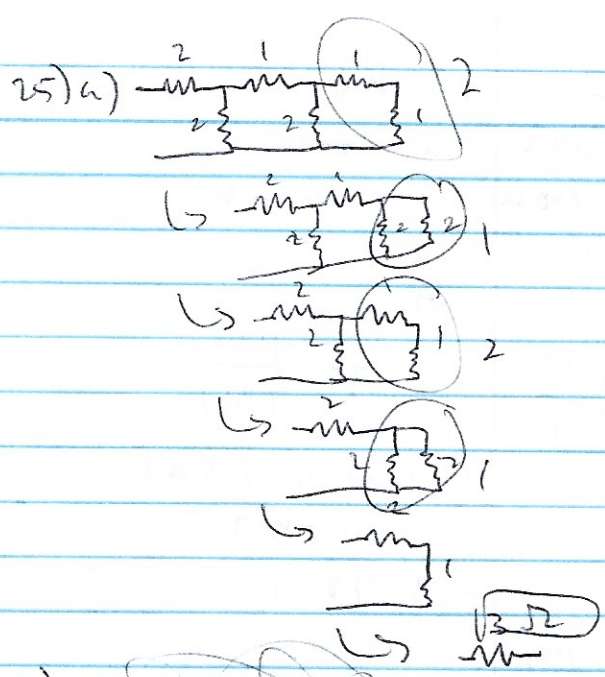 25) a) 2 1 1 2
2 2 1
↳ 2 1
2 2 2 1
↳ 2 1
2 1 2
↳ 2
2 2 1
↳ 2
1
↳ 3 Ω